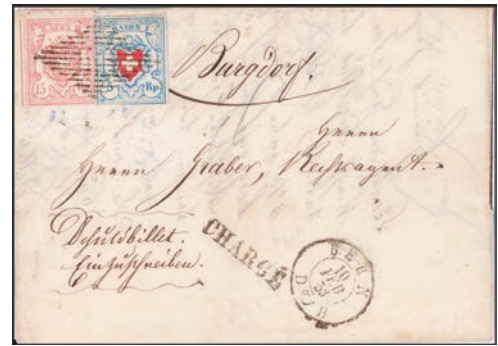 RAYON I
15
Rp
32
Burgdorf.
Herrn
Herrn Graber, Rechtsagent.
Schuldbillet.
Einzuschreiben.
CHARGÉ
BERN
10
FEB
53